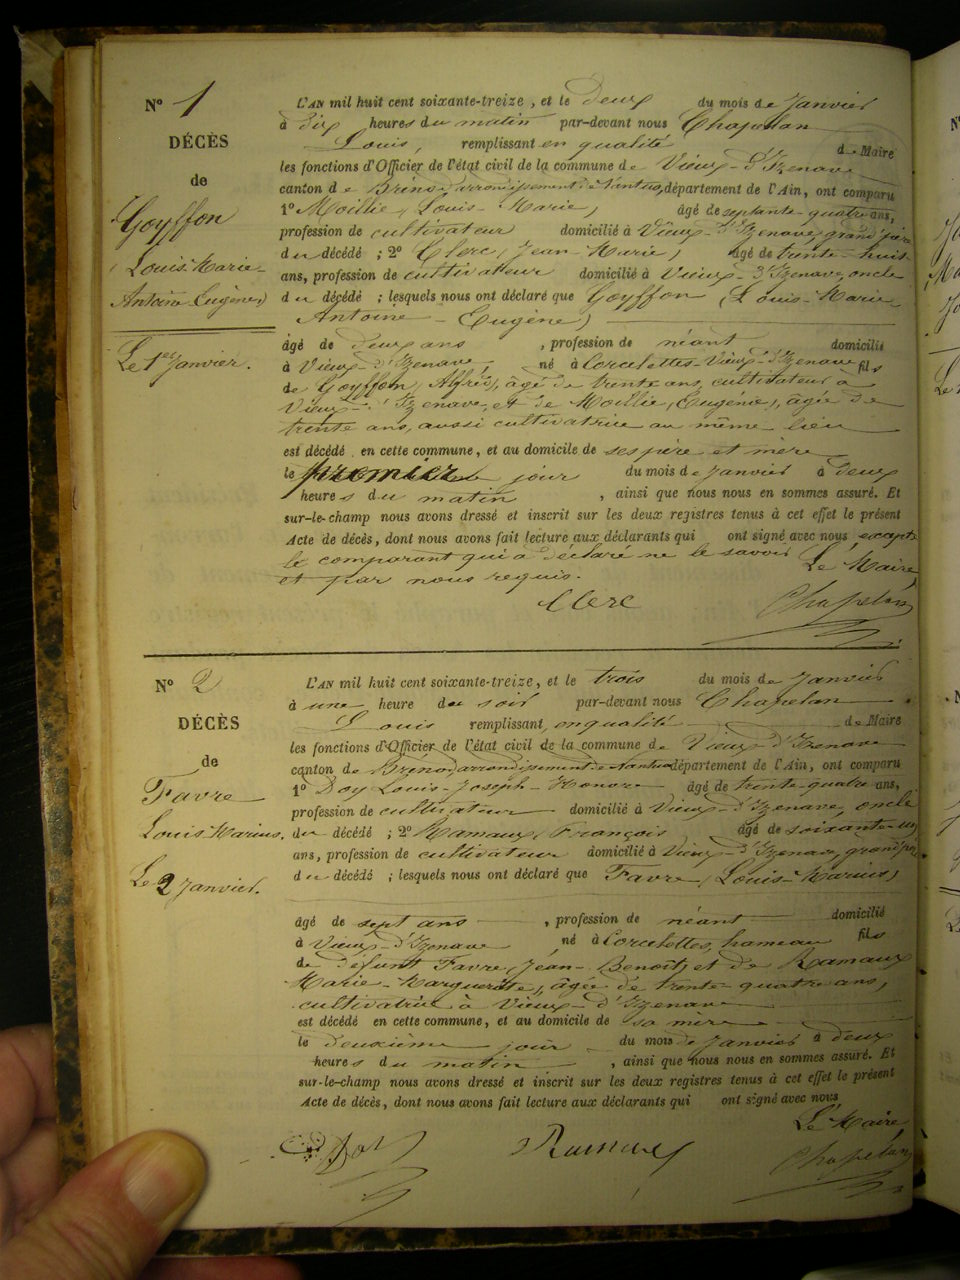 N° 1
DÉCÈS
de
Goyffon
(Louis-Marie-
Antoine Eugène)
Le 1er Janvier.
L'AN mil huit cent soixante-treize, et le deux du mois de Janvier
à dix heures du matin par-devant nous Chapelan
Louis, remplissant en qualité de Maire
les fonctions d'Officier de l'état civil de la commune de Vieux-d'Izenave
canton de Brénod arrondissement de Nantua, département de l'Ain, ont comparu
1° Moillie, (Louis-Marie, âgé de septante-quatre ans,
profession de cultivateur domicilié à Vieux-d'Izenave, grand père
du décédé ; 2° Clerc, (Jean-Marie, âgé de trente-huit
ans, profession de cultivateur domicilié à Vieux-d'Izenave, oncle
du décédé ; lesquels nous ont déclaré que Goyffon (Louis-Marie-
Antoine-Eugène)
âgé de deux ans, profession de néant domicilié
à Vieux-d'Izenave, né à Corcelettes-Vieux-d'Izenave, fils
de Goyffon, Alfred, âgé de trente ans, cultivateur à
Vieux-d'Izenave, et de Moillie, (Eugénie), âgée de
trente ans, aussi cultivatrice au même lieu
est décédé en cette commune, et au domicile de ses père et mère
le premier jour du mois de Janvier à deux
heures du matin, ainsi que nous nous en sommes assuré. Et
sur-le-champ nous avons dressé et inscrit sur les deux registres tenus à cet effet le présent
Acte de décès, dont nous avons fait lecture aux déclarants qui ont signé avec nous, excepté
le comparant qui a déclaré ne le savoir Le Maire,
et par nous requis.
Clerc Chapelan
N° 2
DÉCÈS
de
Favre
Louis Marius.
Le 2 Janvier.
L'AN mil huit cent soixante-treize, et le trois du mois de Janvier
à une heure du soir par-devant nous Chapelan
Louis remplissant en qualité de Maire
les fonctions d'Officier de l'état civil de la commune de Vieux-d'Izenave
canton de Brénod arrondissement de Nantua département de l'Ain, ont comparu
1° Doy Louis-Joseph-Honoré âgé de trente-quatre ans,
profession de cultivateur domicilié à Vieux-d'Izenave, oncle
du décédé ; 2° Ramaux, François, âgé de soixante-un
ans, profession de cultivateur domicilié à Vieux-d'Izenave, grand père
du décédé ; lesquels nous ont déclaré que Favre (Louis-Marius)
âgé de sept ans, profession de néant domicilié
à Vieux-d'Izenave né à Corcelettes, hameau fils
de défunt Favre, Jean-Benoît, et de Ramaux
Marie-Marguerite, âgée de trente-quatre ans,
cultivatrice à Vieux-d'Izenave
est décédé en cette commune, et au domicile de sa mère
le deuxième jour du mois de Janvier à deux
heures du matin, ainsi que nous nous en sommes assuré. Et
sur-le-champ nous avons dressé et inscrit sur les deux registres tenus à cet effet le présent
Acte de décès, dont nous avons fait lecture aux déclarants qui ont signé avec nous
Le Maire,
Doy Ramaux Chapelan